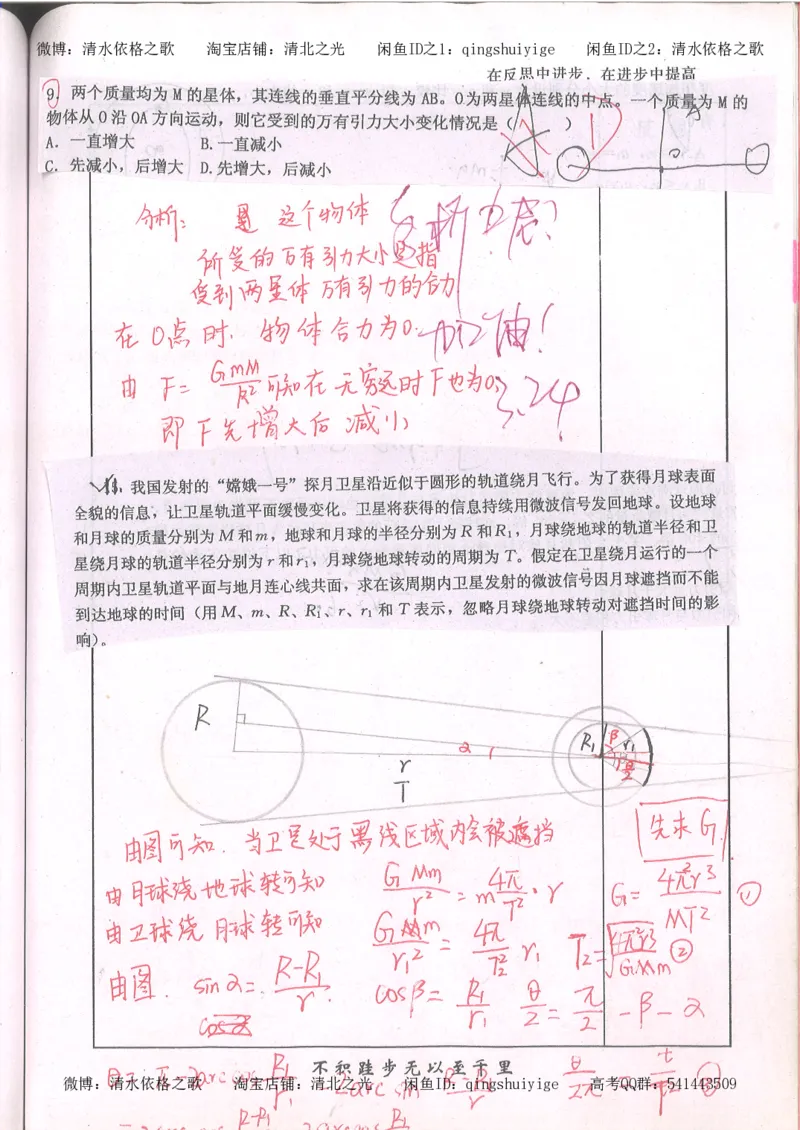 微博：清水依格之歌 淘宝店铺：清北之光 闲鱼ID之1：qingshuiyige 闲鱼ID之2：清水依格之歌
在反思中进步，在进步中提高
9. 两个质量均为 M 的星体，其连线的垂直平分线为 AB。O 为两星体连线的中点。一个质量为 M 的
物体从 O 沿 OA 方向运动，则它受到的万有引力大小变化情况是（ ）
A. 一直增大 B. 一直减小
C. 先减小，后增大 D. 先增大，后减小
A
O
分析： 这个物体
所受的万有引力大小是指
受到两星体万有引力的合力
在O点时. 物体合力为0.
加油！
由 F= GmM/R² 可知在无穷远时F也为0,
3.24
即F先增大后减小
我国发射的“嫦娥一号”探月卫星沿近似于圆形的轨道绕月飞行。为了获得月球表面
全貌的信息，让卫星轨道平面缓慢变化。卫星将获得的信息持续用微波信号发回地球。设地球
和月球的质量分别为 M 和 m，地球和月球的半径分别为 R 和 R₁，月球绕地球的轨道半径和卫
星绕月球的轨道半径分别为 r 和 r₁，月球绕地球转动的周期为 T。假定在卫星绕月运行的一个
周期内卫星轨道平面与地月连心线共面，求在该周期内卫星发射的微波信号因月球遮挡而不能
到达地球的时间（用 M、m、R、R₁、r、r₁ 和 T 表示，忽略月球绕地球转动对遮挡时间的影
响）。
R
α
r
T
R₁
β
r₁
θ/2
由图可知. 当卫星处于黑线区域内会被遮挡
先求G.
由月球绕地球转可知 GMm/r² = m 4π/T² · r G= 4π²r³/MT² ①
由卫球绕月球转可知 GMm/r₁² = 4π/T₂² r₁ T₂= √4π²r³/GMm ②
由图. sinα= R-R₁/r cosβ= R₁/r₁ θ/2 = π/2 -β-α
不积跬步无以至千里
微博：清水依格之歌 淘宝店铺：清北之光 闲鱼ID：qingshuiyige 高考QQ群：541443509